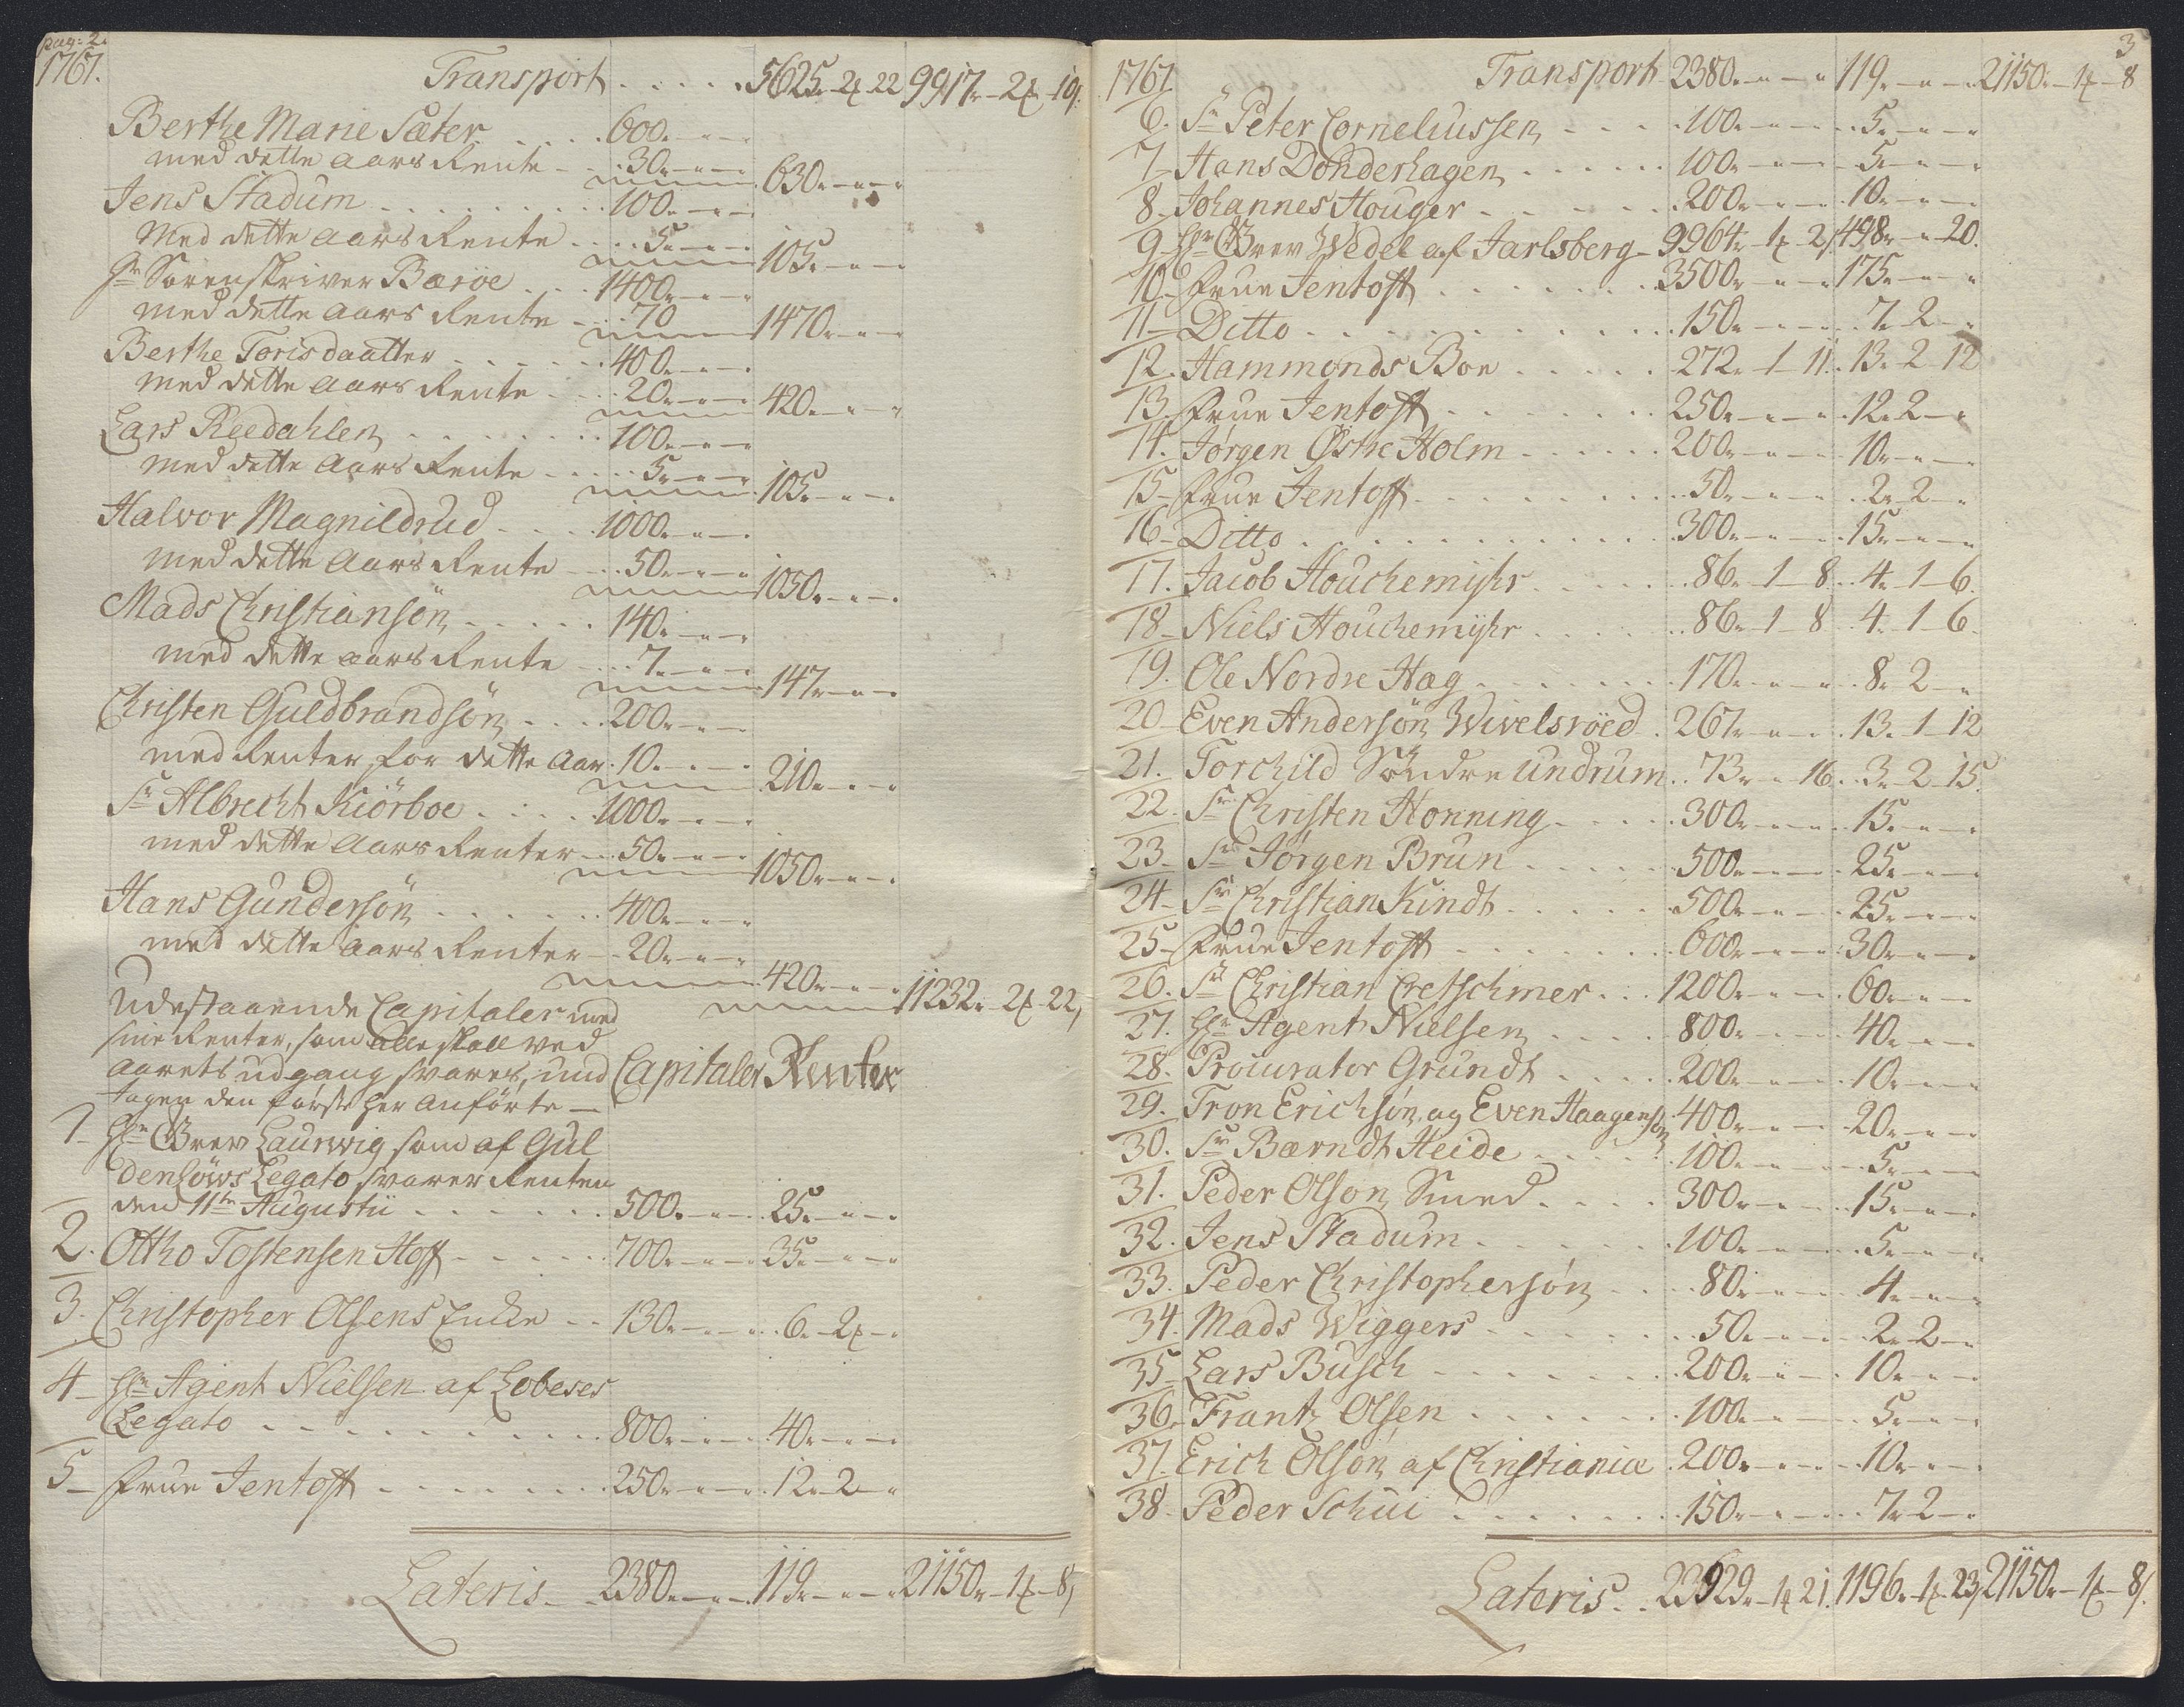 pag: 2.
1767.
Transport . . . . . 5625. 2 22 9917. - 2 - 10
Berthe Marie Sæter . . . . 600. - " -
med dette Aars Rente - . . 30. - " - 630. - " -
Jens Stadum . . . . . . . . 100. - " -
Med dette Aars Rente . . . 5. - " - 105. - " -
Hr Sorenskriver Baröe . . . 1400. - " -
med dette Aars Rente - . . 70 1470. - " -
Berthe Torisdaatter . . . . . 400. - " -
med dette Aars Rente - . . 20. - " - 420. - " -
Lars Reedahlen . . . . . . . 100. - " -
med dette Aars Rente - . . . 5. - " - 105. - " -
Halvor Magnildrud . . . . 1000. - " -
med dette Aars Rente - . . 50. - " - 1050. - " -
Mads Christiansön . . . . . 140. - " -
med dette Aars Rente - . . . 7. - " - 147. - " -
Christen Guldbrandsön . . . . 200. - " -
med Renter for dette Aar . 10. - " - 210. - " -
Sr Albrecht Kiörboe . . . . 1000. - " -
med dette Aars Renter - . 50. - " - 1050. - " -
Hans Gundersön . . . . . . 400. - " -
med dette Aars Renter - . 20. - " - 420. - " - 11232. - 2 - 22
Udestaaende Capitaler med
sine Renter, som alle skall ved
Aarets udgang svares, und
tagen den förste her Anförte - Capitaler Renter
1 - Hr Grev Laurwig som af Gül
denlöws Legato, svarer Renten
den 11te Augustii . . . . . . 500. - " - 25. - " -
2. Ottho Tostensen Hoff - . . . . 700. - " - 35. - " -
3. Christopher Olsens Encke - . 130. - " - 6. - 2 - "
4 - Hr Agent Nielsen af Lobeses
Legato . . . . . . . . . . 800. - " - 40. - " -
5 - Frue Jentoft . . . . . . . 250. - " - 12. - 2 - "
Lateris - . 2380. - " - 119. - " - 21150. - 1 - 8
3
1767. Transport 2380. - " - " 119. - " - 21150. - 1 - 8
6. Sr Peter Corneliussen - - - . 100. - " - 5. - " -
7 - Hans Donderhagen . . . . . 100. - " - 5. - " -
8 - Johannes Houger . . . . . . 200. - " - 10. - " -
9 - Hr Grev Wedel af Jarlsberg - 9964. - 1 - 21 498. - " - 20.
10 - Frue Jentoft . . . . . . . 3500. - " - 175. - " -
11 - Ditto . . . . . . . . . . 150. - " - 7. 2 - "
12. Hammonds Boe . . . . . 272. - 1 - 11. 13. - 2 - 12
13. Frue Jentoft . . . . . . . 250. - " - 12. 2 - "
14. Jørgen Østre Holm . . . . . 200. - " - 10. - " -
15 - Frue Jentoft . . . . . . . . 50. - " - 2. 2 - "
16 - Ditto . . . . . . . . . . 300. - " - 15. - " -
17. Jacob Houchemyhr . . . . . 86. - 1 - 8. 4. - 1 - 6.
18 - Niels Houchemyhr . . . . . 86. - 1 - 8 4. - 1 - 6.
19. Ole Nordre Hag . . . . . . 170. - " - 8. 2 - "
20 - Even Andersön Wivelsröed . 267. - " - 13. - 1 - 12
21. Torchild Söndre Undrum . . 73. - " - 16. 3. - 2 - 15.
22. Sr Christen Honning . . . . . 300. - " - 15. - " -
23 - Sr Jörgen Brun . . . . . . 500. - " - 25. - " -
24 - Sr Christian Kindt . . . . . 500. - " - 25. - " -
25 - Frue Jentoft . . . . . . . 600. - " - 30. - " -
26. Sr Christian Cretschmer . . . 1200. - " - 60. - " -
27. Hr Agent Nielsen . . . . . 800. - " - 40. - " -
28. Procurator Grundt . . . . . 200. - " - 10. - " -
29. Tron Erichsön, og Even Haagensön 400. - " - 20. - " -
30. Sr Bærndt Heide . . . . . 100. - " - 5. - " -
31. Peder Olson Smed . . . . . 300. - " - 15. - " -
32. Jens Stadum . . . . . . . 100. - " - 5. - " -
33. Peder Christophersön . . . . 80. - " - 4. - " -
34. Mads Wiggers . . . . . . . 50. - " - 2. 2 - "
35 - Lars Busch . . . . . . . . 200. - " - 10. - " -
36. Frantz Olsen . . . . . . . 100. - " - 5. - " -
37. Erich Olsön af Christiania 200. - " - 10. - " -
38 - Peder Schui . . . . . . . 150. - " - 7. 2 - "
Lateris . . 23629. - 1 21. 1196. - 1 - 23 21150. - 1 - 8